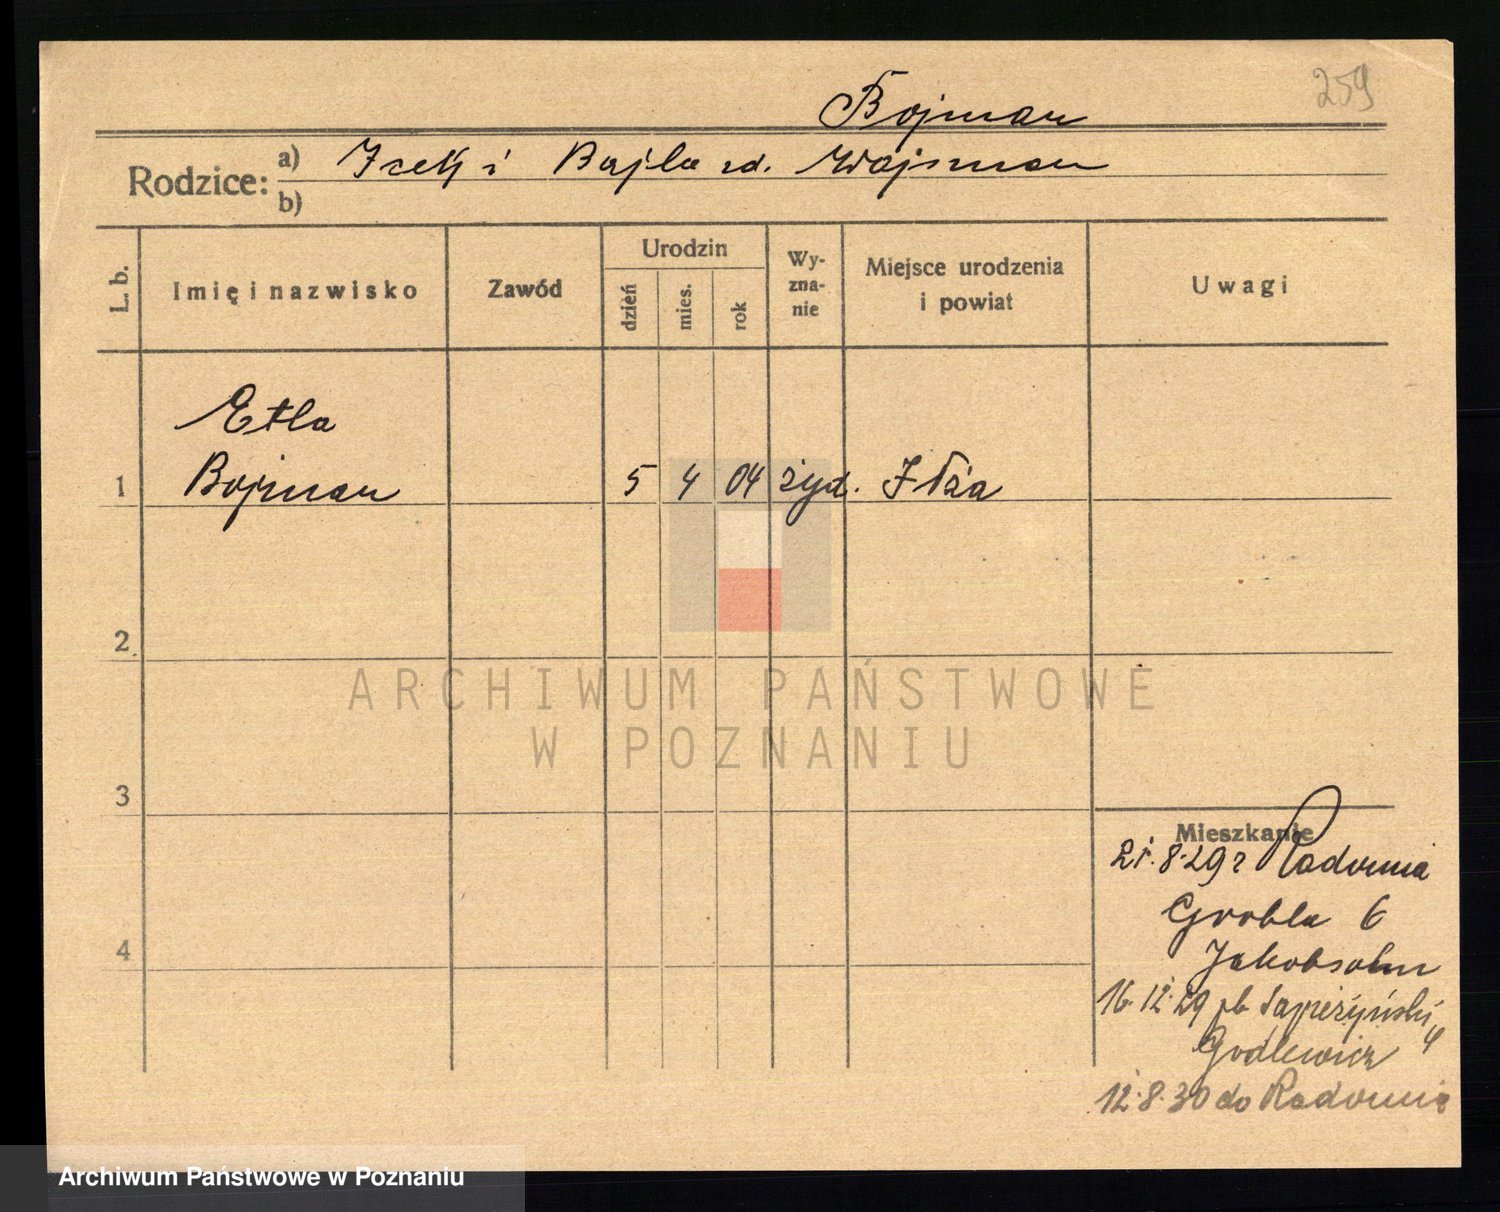 259
Bojman
Rodzice: a) Icek i Bajla zd. Wajsman
b)
L. b.
Imię i nazwisko
Zawód
Urodzin
dzień
mies.
rok
Wy-
zna-
nie
Miejsce urodzenia
i powiat
Uwagi
Etla
1 Bojman 5 4 04 żyd. Iłża
2
3
4
Mieszkanie
21.8.29 r Radomia
Grobla 6
Jakobsohn
16.12.29 pl. Sapieżyński 4
Godlewicz
12.8.30 do Radomia
ARCHIWUM PAŃSTWOWE
W POZNANIU
Archiwum Państwowe w Poznaniu